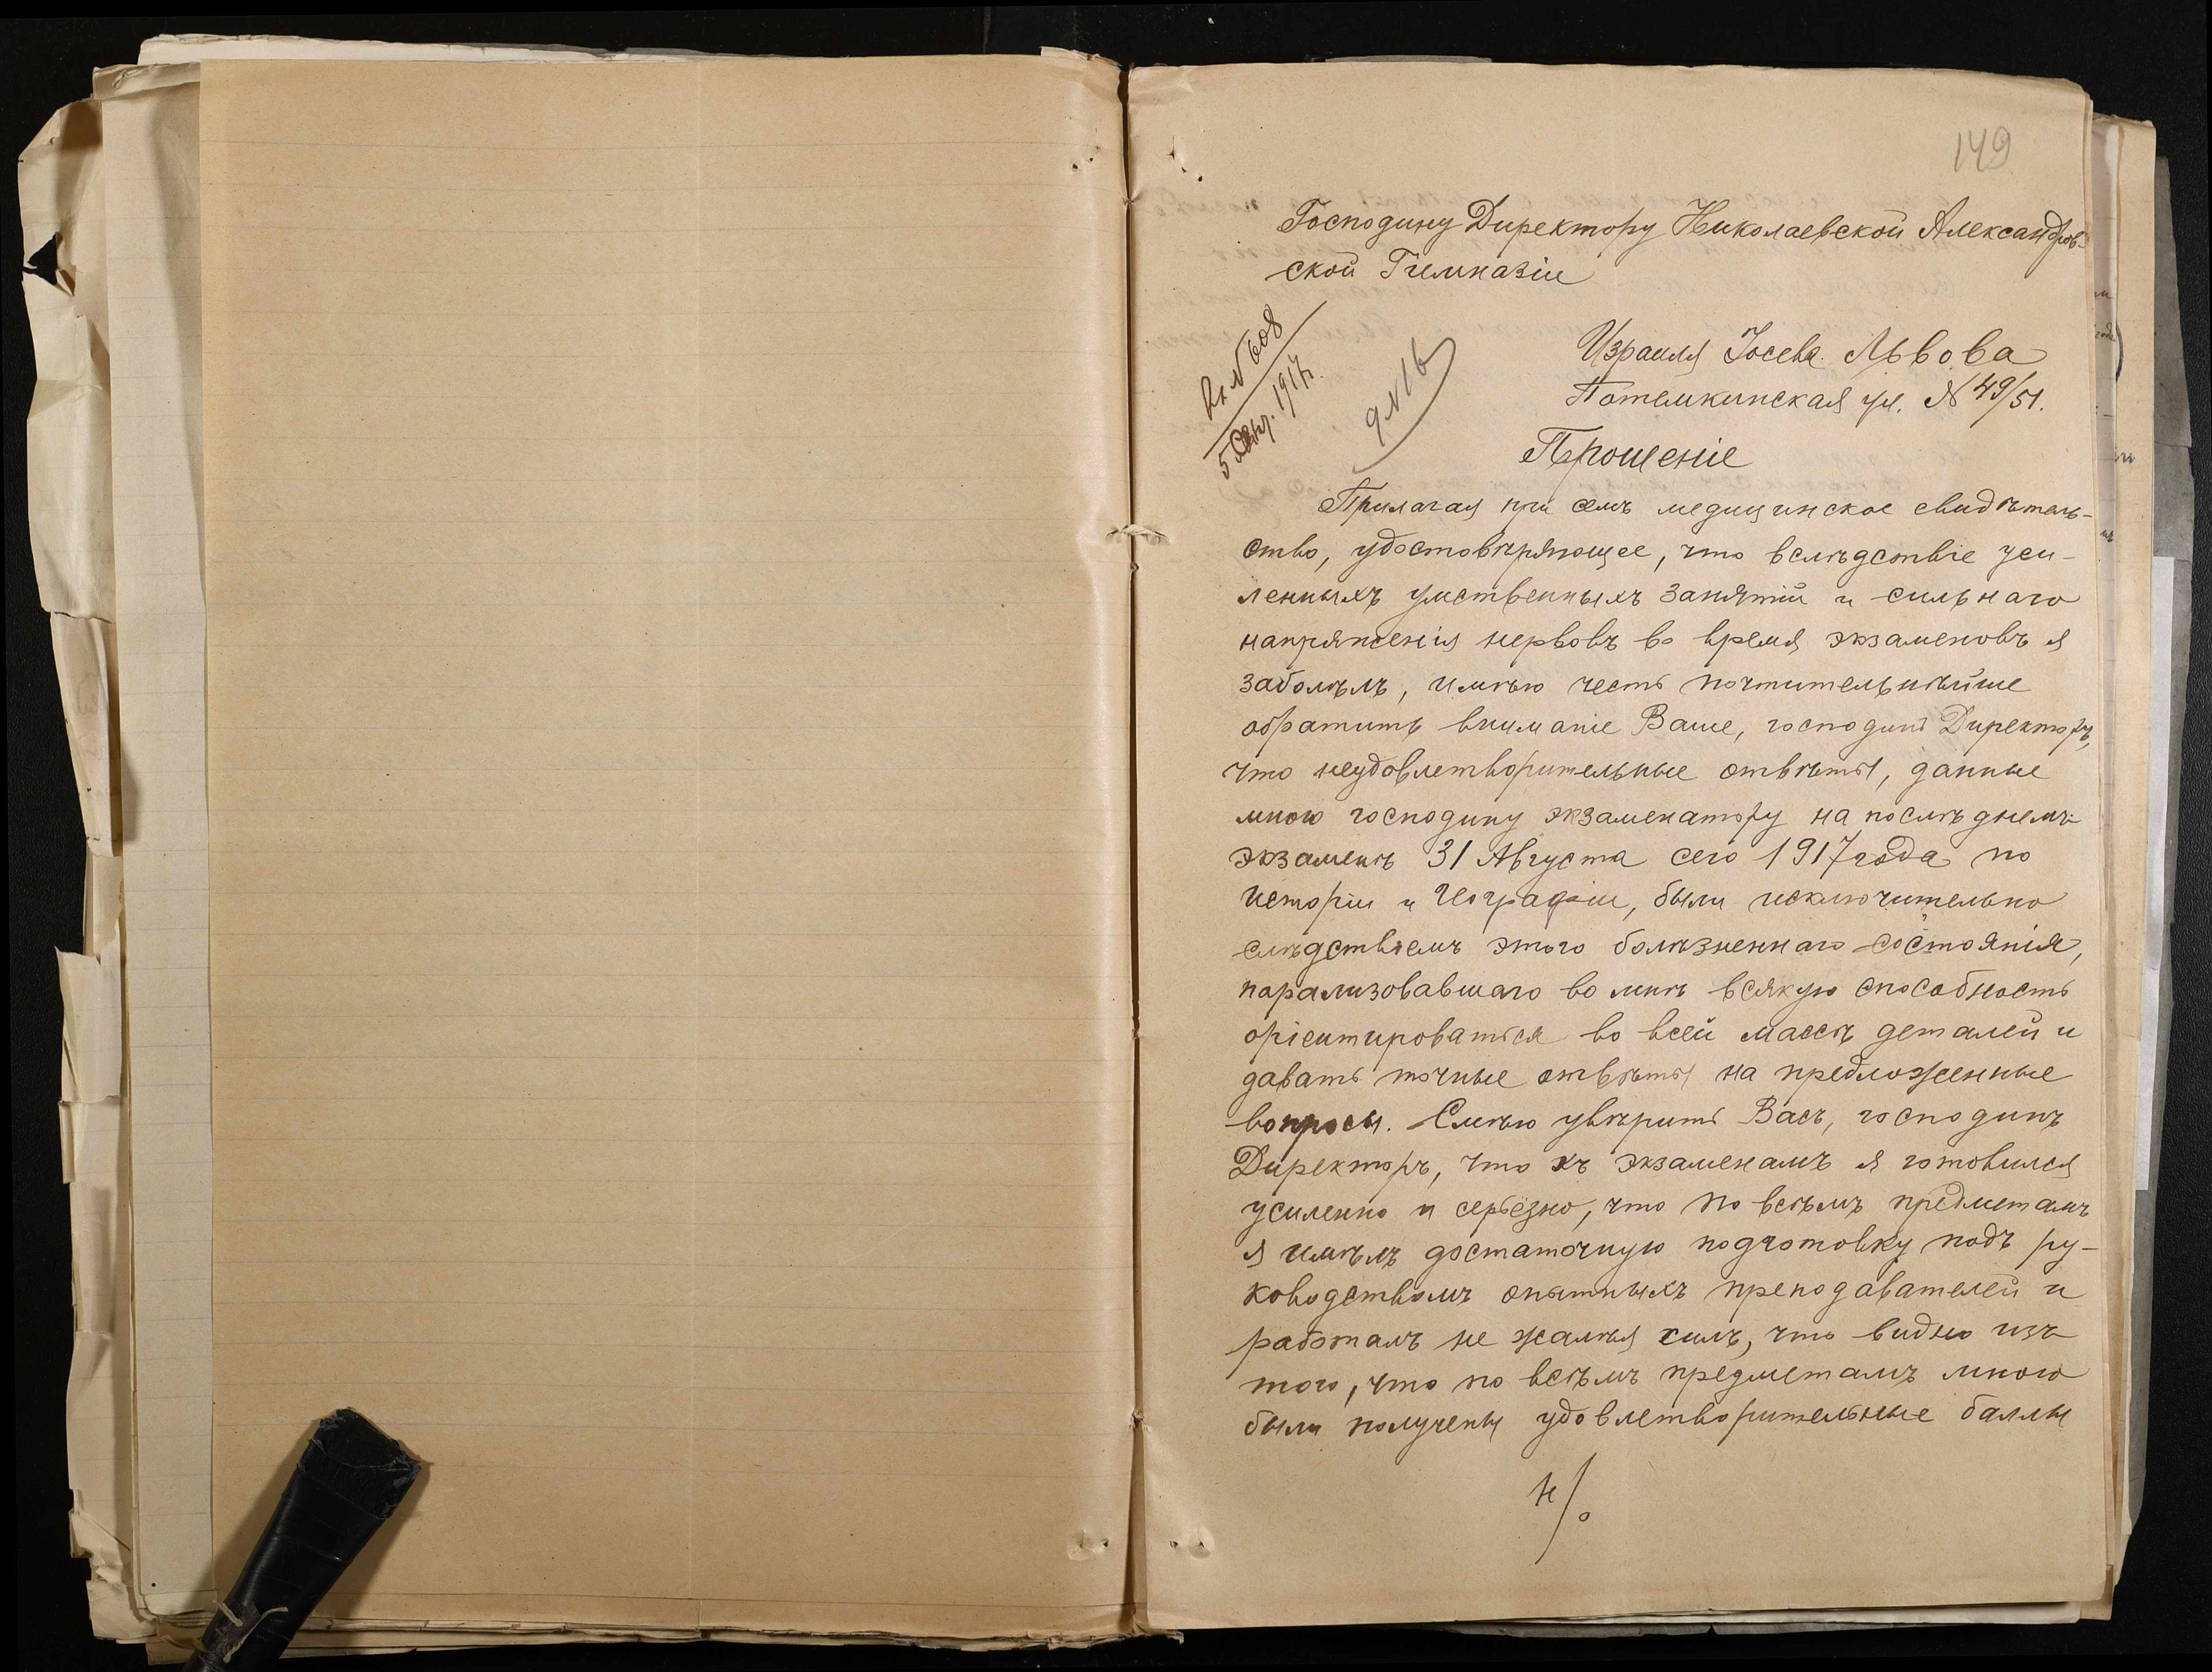 149
Господину Директору Николаевской Александров-
ской Гимназіи
Вх. № 608
5 Сент. 1917 г.
Израиля Іосева Львова
Потемкинская ул. № 49/51.
Прошеніе
Прилагая при семъ медицинское свидѣтель-
ство, удостовѣряющее, что вслѣдствіе уси-
ленныхъ умственныхъ занятій и сильнаго
напряженія нервовъ во время экзаменовъ я
заболѣлъ, имѣю честь почтительнѣйше
обратить вниманіе Ваше, господинъ Директоръ,
что неудовлетворительные отвѣты, данные
мною господину экзаменатору на послѣднемъ
экзаменѣ 31 Августа сего 1917 года по
исторіи и Географіи, были исключительно
слѣдствіемъ этого болѣзненнаго состоянія,
парализовавшаго во мнѣ всякую способность
оріентироваться во всей массѣ деталей и
давать точные отвѣты на предложенные
вопросы. Смѣю увѣрить Васъ, господинъ
Директоръ, что къ экзаменамъ я готовился
усиленно и серьёзно, что по всѣмъ предметамъ
я имѣлъ достаточную подготовку подъ ру-
ководствомъ опытныхъ преподавателей и
работалъ не жалѣя силъ, что видно изъ
того, что по всѣмъ предметамъ мною
были получены удовлетворительные баллы